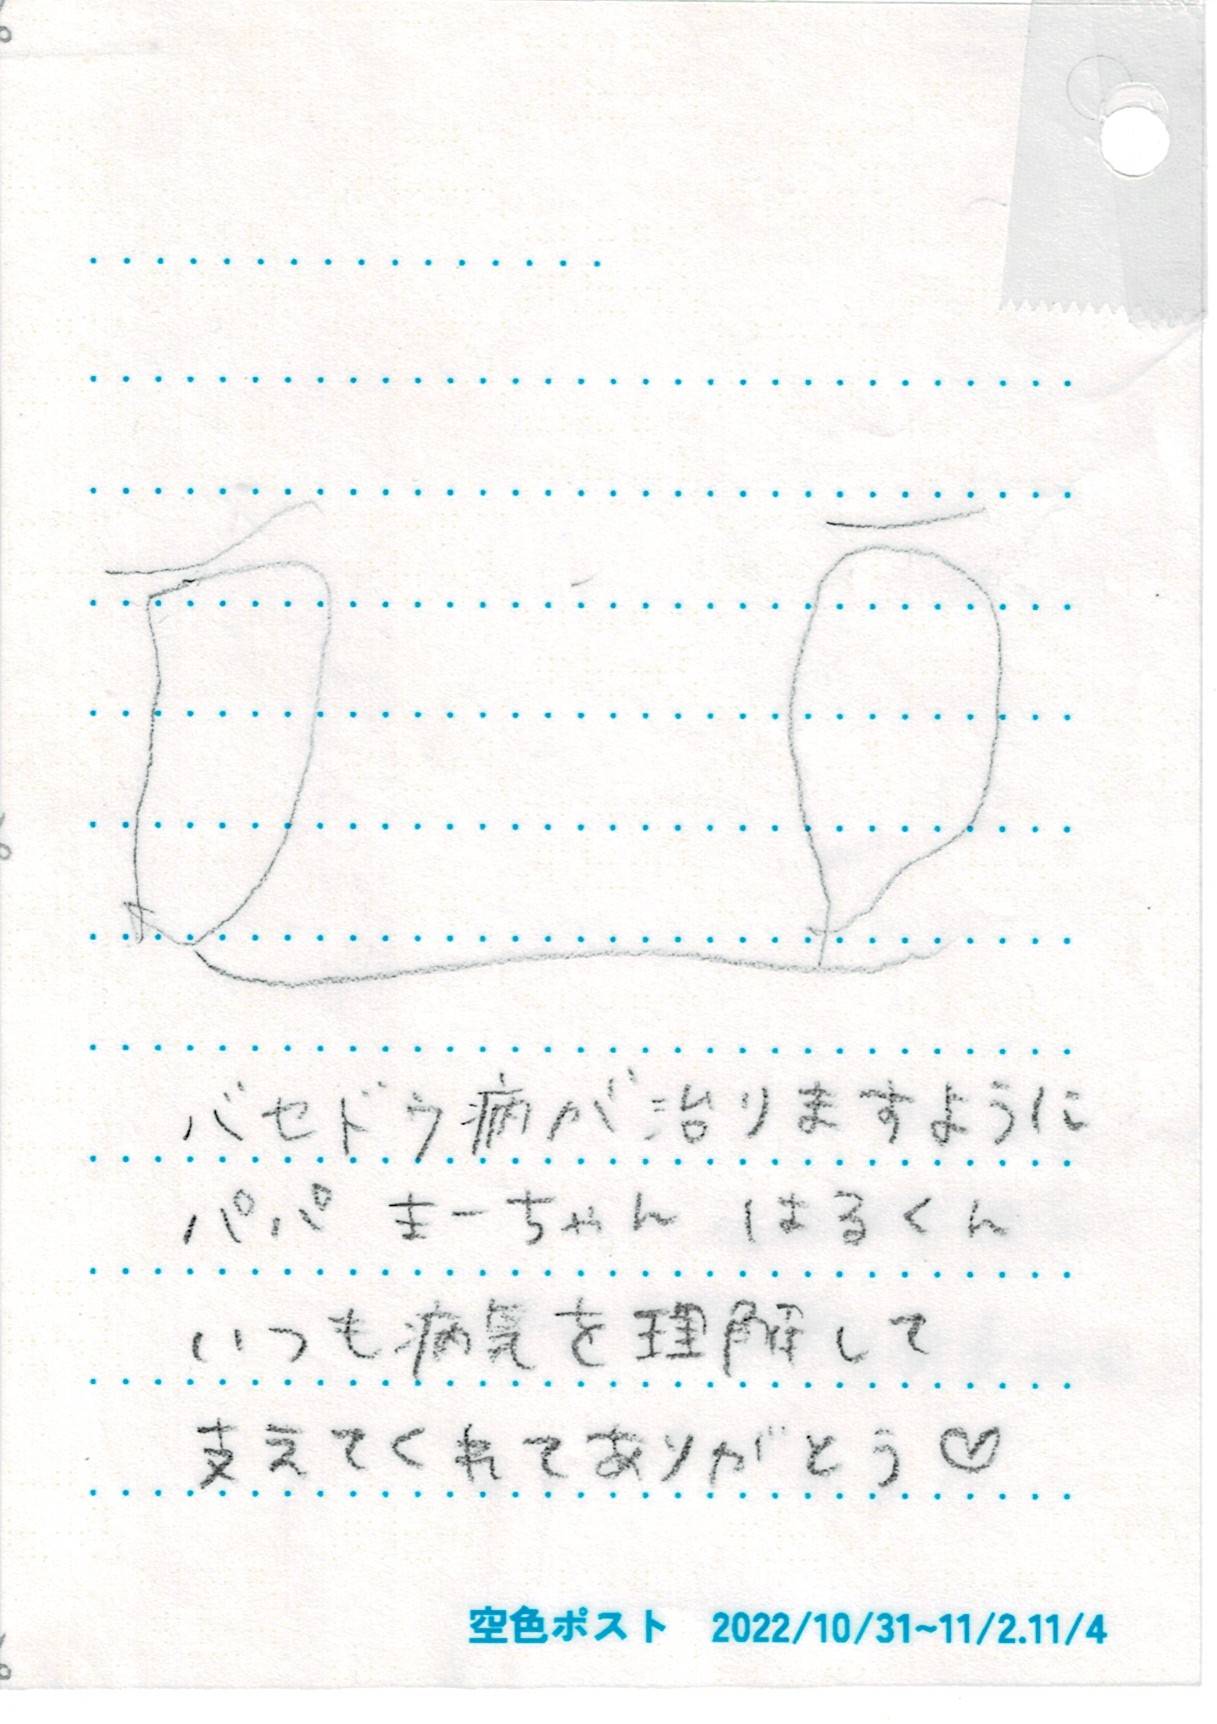 バセドウ病が治りますように
パパ まーちゃん はるくん
いつも病気を理解して
支えてくれてありがとう♡
空色ポスト 2022/10/31~11/2.11/4